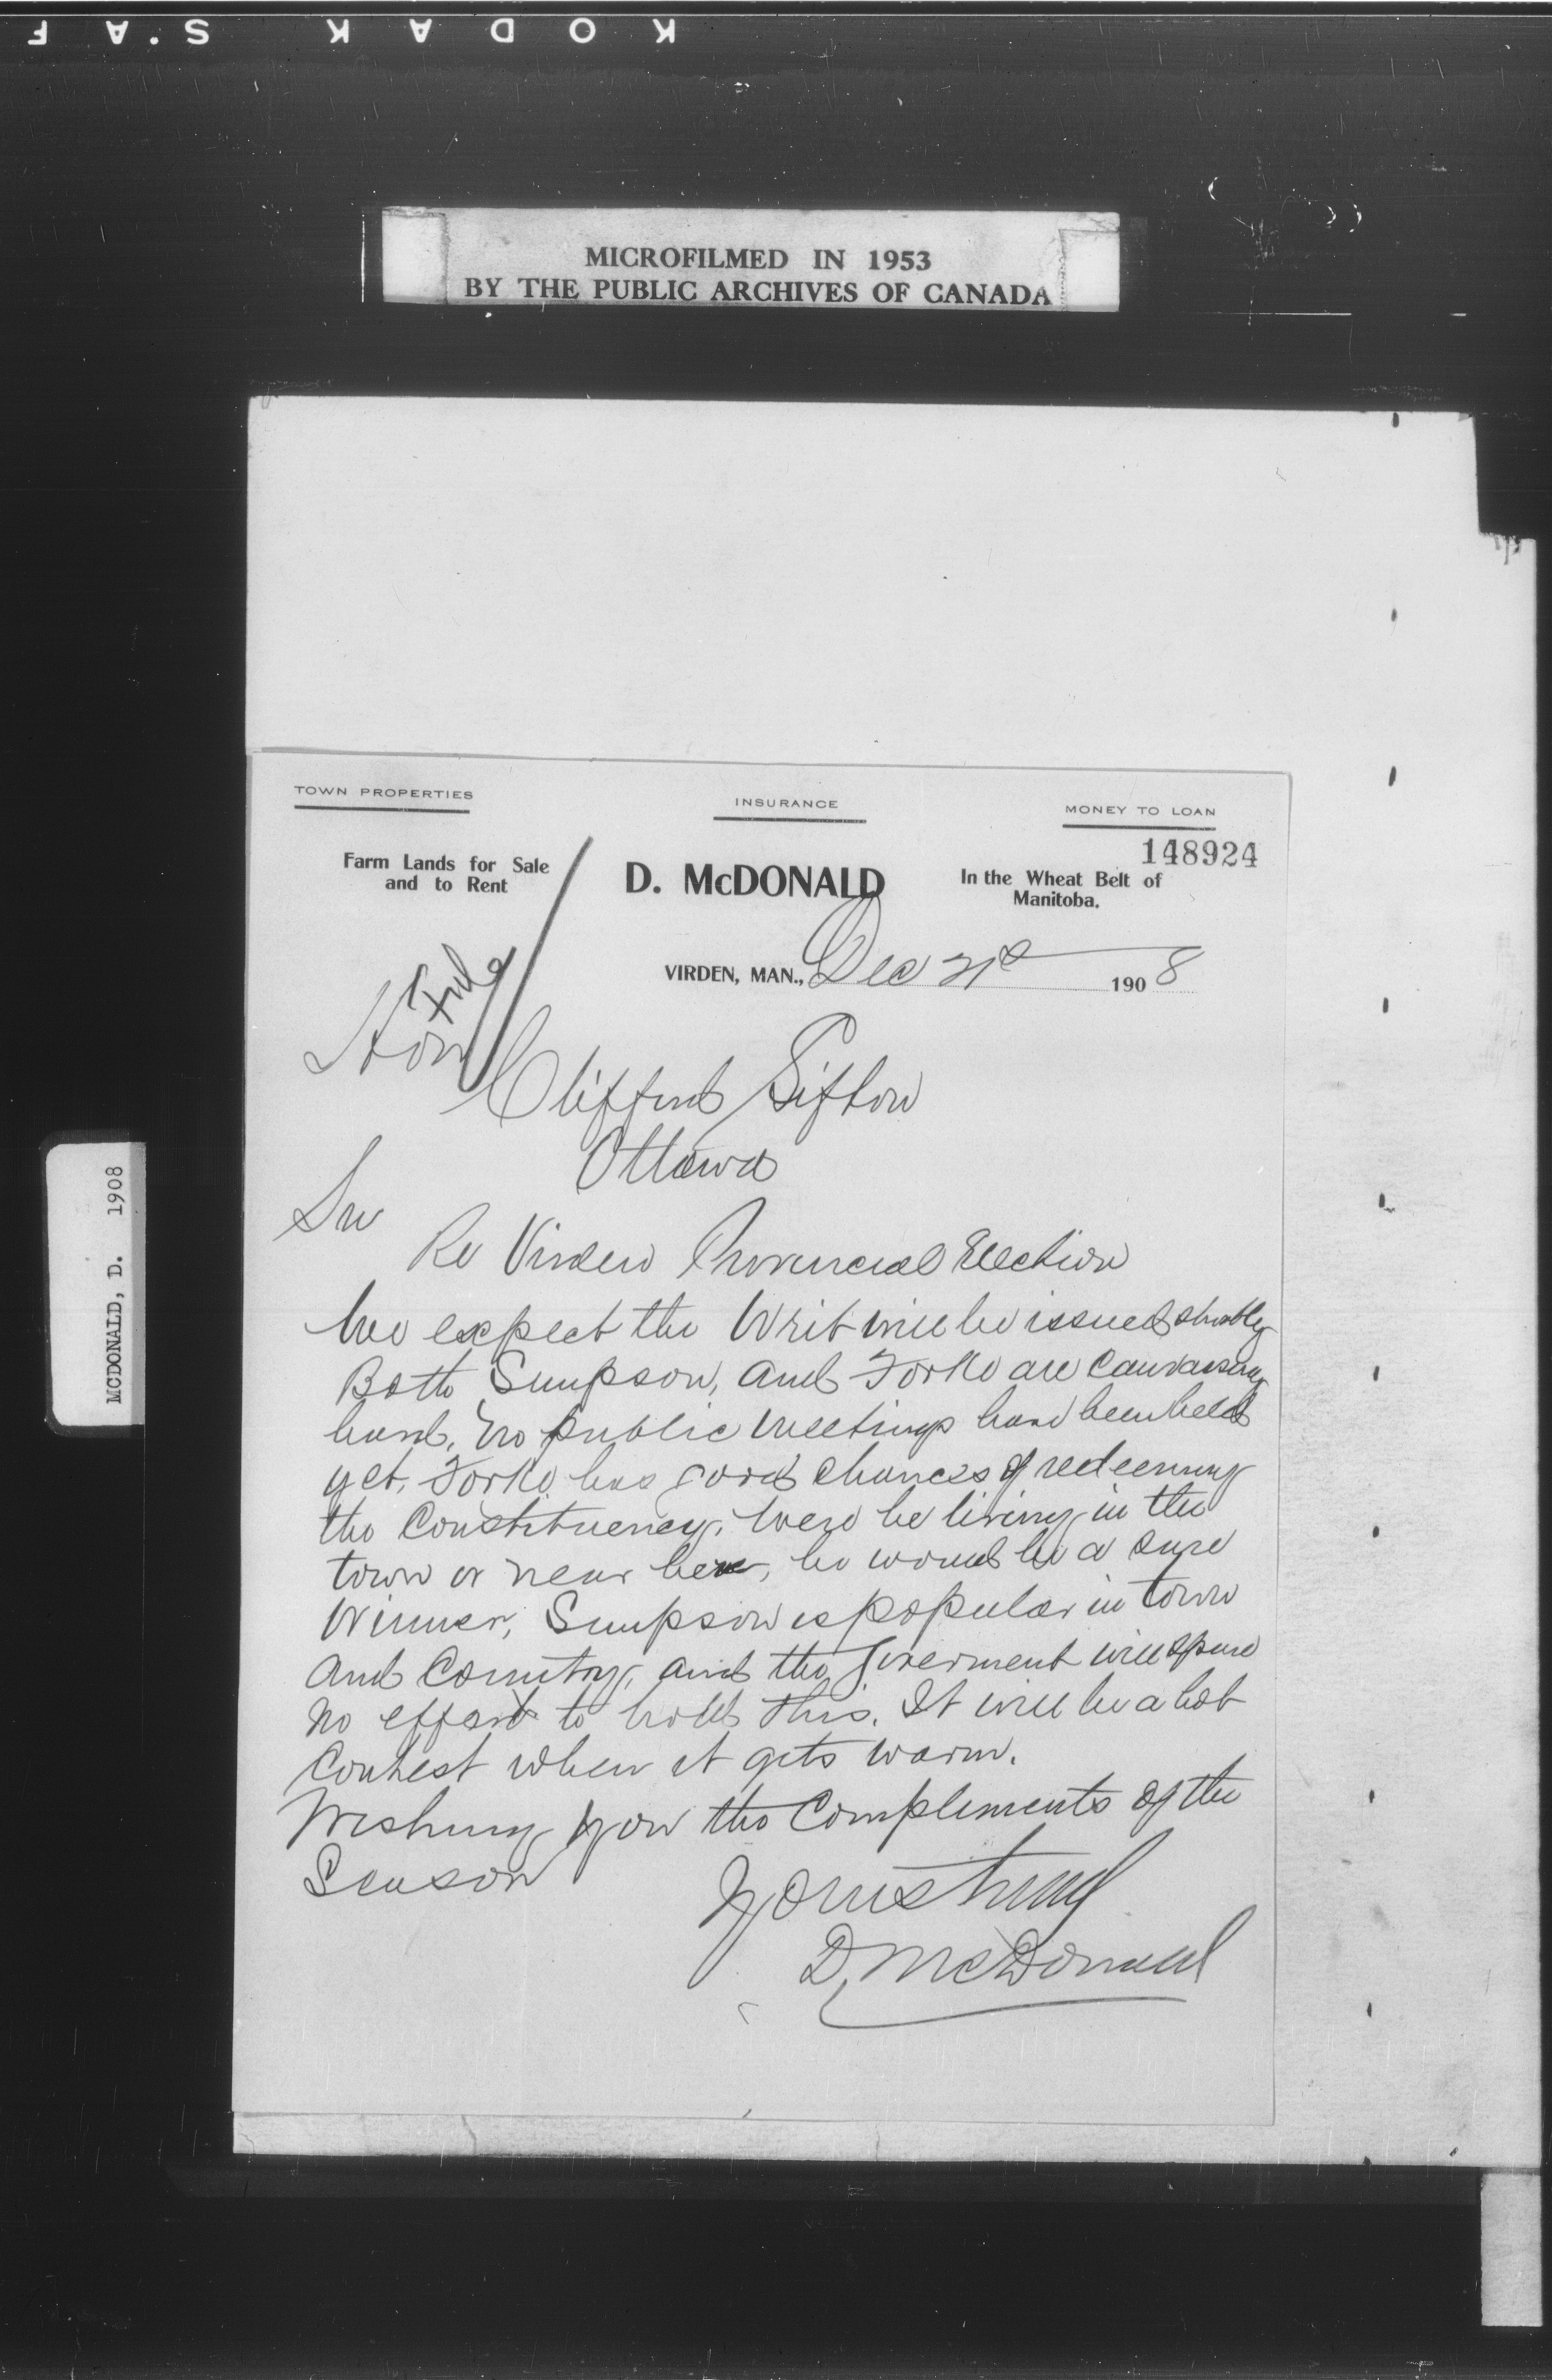 KODAK S.AF
MICROFILMED IN 1953
BY THE PUBLIC ARCHIVES OF CANADA
TOWN PROPERTIES
INSURANCE
MONEY TO LOAN
148924
Farm Lands for Sale
and to Rent
D. McDONALD
In the Wheat Belt of
Manitoba.
VIRDEN, MAN., Dec 21st 1908
File
Hon
Clifford Sifton
Ottawa
Sir
Re Virden Provincial Election
We expect the Writ will be issued shortly
Both Simpson, and Forke are Canvassing
hard, no public meetings have been held
yet, Forke has good chances of redeeming
the Constituency. Were he living in the
town or near here, he would be a sure
Winner, Simpson is popular in town
and Country, and the Goverment will spare
no effort to hold this. It will be a hot
Contest when it gets warm.
Wishing you the Compliments of the
Season
Yours truly
D. McDonald
MCDONALD, D. 1908